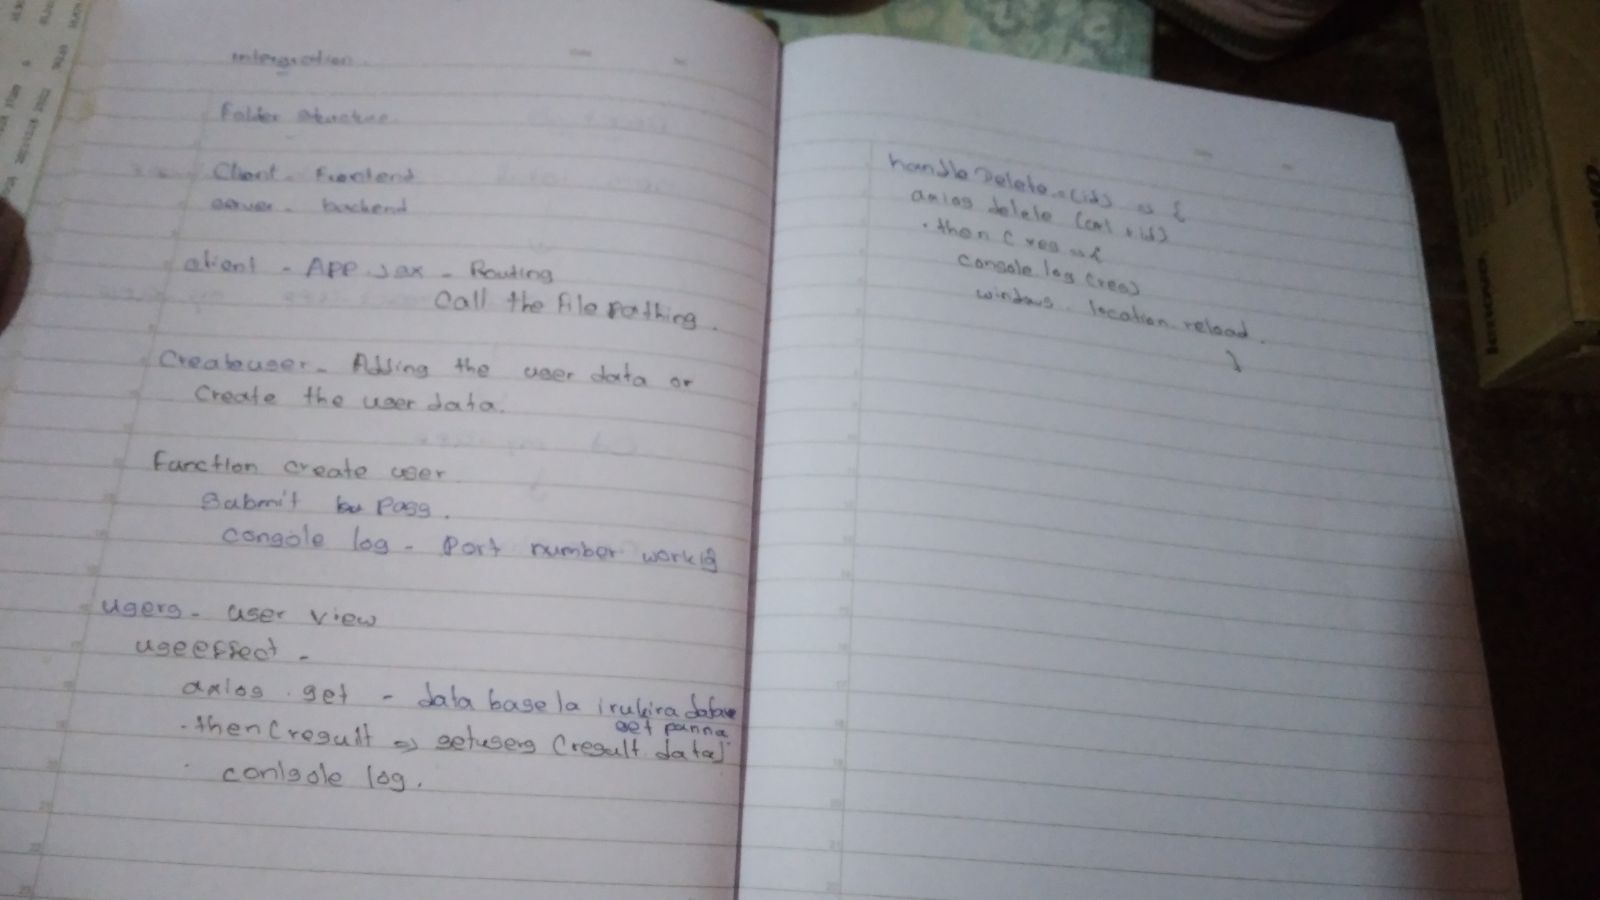 intergration.
Folder structure.
Client - Frontend
server - backend
client - APP.Jsx - Routing
Call the File Pathing.
Createuser - Adding the user data or
Create the user data.
Function create user
Submit Pass.
Console log - Port number workig
users - user view
useeffect -
axios . get - data base la irukira datave
get panna
. then (result => setusers (result data)
conlsole log.
handle Delete = (id) => {
axios delete (url + id)
. then ( res => {
console log (res)
windows . location reload.
}
lenovo